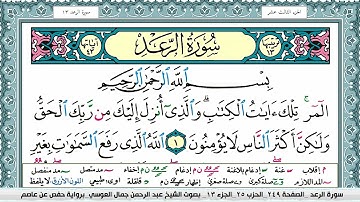 الجزء الثالث عشر
سورة الرعد ١٣
سُورَةُ الرَّعْدِ
آياتها ٤٣
بِسْمِ اللَّهِ الرَّحْمَٰنِ الرَّحِيمِ
الٓمٓرۚ تِلْكَ ءَايَٰتُ ٱلْكِتَٰبِۗ وَٱلَّذِىٓ أُنزِلَ إِلَيْكَ مِن رَّبِّكَ ٱلْحَقُّ
وَلَٰكِنَّ أَكْثَرَ ٱلنَّاسِ لَا يُؤْمِنُونَ ١ ٱللَّهُ ٱلَّذِى رَفَعَ ٱلسَّمَٰوَٰتِ بِغَيْرِ
سورة الرعد الصفحة ٢٤٩ الحزب ٢٥ الجزء ١٣ بصوت الشيخ عبد الرحمن جمال العوسي برواية حفص عن عاصم